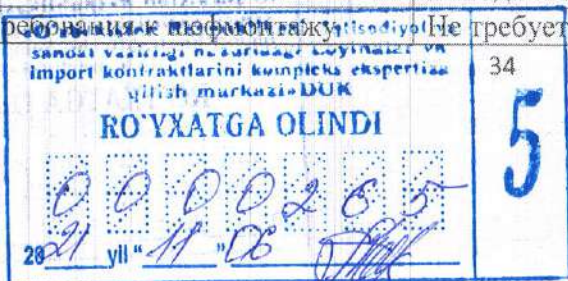 требования к шефмонтажу Не требует
sanoat vazirligi huzuridagi Loyihalar va
import kontraktlarini kompleks ekspertiza
qilish markazi» DUK
RO'YXATGA OLINDI
34
0 0 0 0 2 6 5
5
2021 yil "11" 06